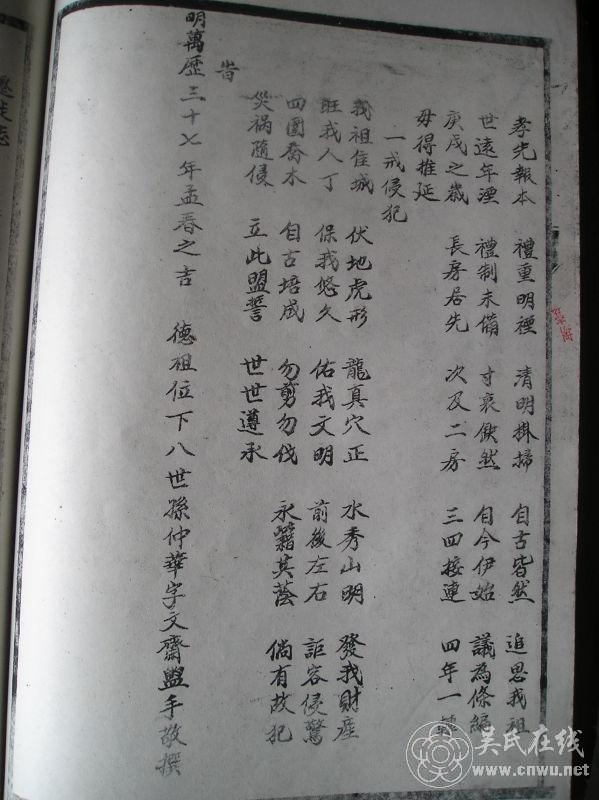 孝先報本 禮重明禋 清明掛掃 自古皆然 追思我祖
世遠年湮 禮制未備 寸衷缺然 自今伊始 議為條編
庚戌之歲 長房居先 次及二房 三四接連 四年一
毋得推延
一戒侵犯
我祖住城 伏地虎形 龍真穴正 水秀山明 發我財産
旺我人丁 保我悠久 佑我文明 前後左右 詎容侵驚
四圍喬木 自古培成 勿剪勿伐 永籍其蔭 倘有故犯
災禍隨侵 立此盟誓 世世遵承
旹
明萬歷三十七年孟春之吉 德祖位下八世孫仲華字文齋盥手敬撰
吴氏在线
www.cnwu.net